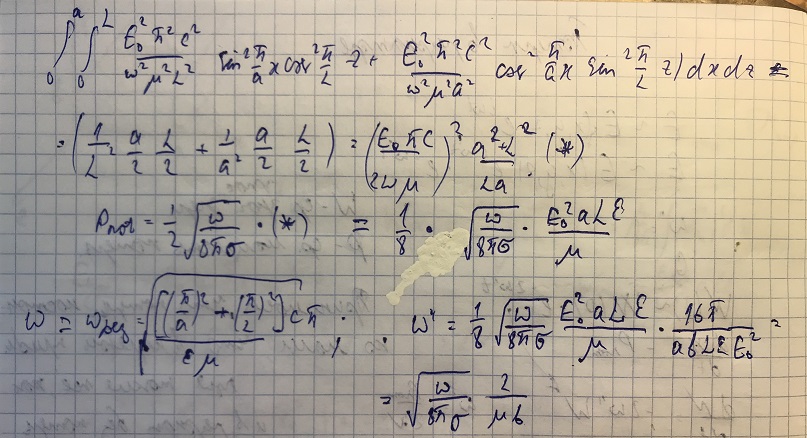 ∫₀ᵃ ∫₀ᴸ E₀²π²c²/(ω²μ²L²) sin² π/a x cos² π/L z + E₀²π²c²/(ω²μ²a²) cos² π/a x sin² π/L z) dx dz =
= (1/L² a/2 L/2 + 1/a² a/2 L/2) = (E₀πc/2ωμ)² (a²+L²)/La (*)
Pпот = 1/2 √(ω/8πσ) · (*) = 1/8 · √(ω/8πσ) · E₀²aLε/μ
ω = ωрез = √([(π/a)² + (π/2)²]cπ/εμ) ; ω'' = 1/8 √(ω/8πσ) E₀²aLε/μ · 16π/(abLεE₀²) =
= √(ω/8πσ) · 2/μb